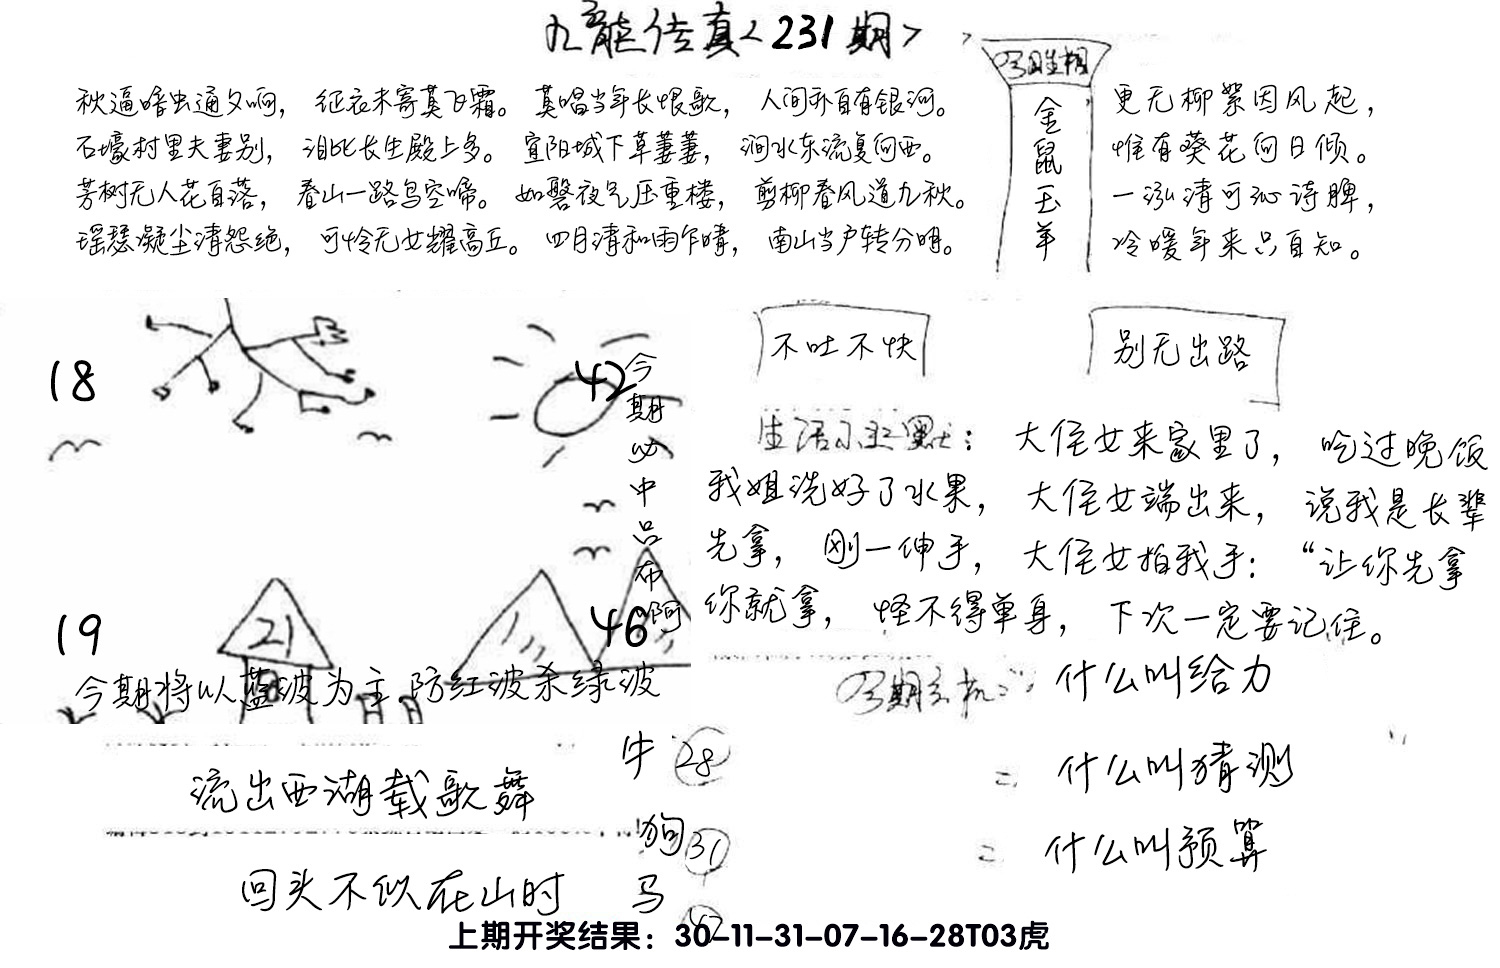 九龙传真<231期>
今期生相
金鼠玉羊
秋逼暗虫通夕响，征衣未寄莫飞霜。莫唱当年长恨歌，人间亦自有银河。
石壕村里夫妻别，泪比长生殿上多。宜阳城下草萋萋，涧水东流复向西。
芳树无人花自落，春山一路鸟空啼。如磐夜气压重楼，剪柳春风道九秋。
瑶瑟凝尘清怨绝，可怜无女耀高丘。四月清和雨乍晴，南山当户转分明。
更无柳絮因风起，
惟有葵花向日倾。
一泓清可沁诗脾，
冷暖年来只自知。
18
42
19
21
46
今期必中只布啊
今期将以蓝波为主.防红波杀绿波
不吐不快
别无出路
生活小幽默：大侄女来家里了，吃过晚饭
我姐洗好了水果，大侄女端出来，说我是长辈
先拿，刚一伸手，大侄女拍我手：“让你先拿
你就拿，怪不得单身，下次一定要记住。
什么叫给力
= 什么叫猜测
= 什么叫预算
流出西湖载歌舞
回头不似在山时
牛 28
狗 31
马 42
上期开奖结果：30-11-31-07-16-28T03虎